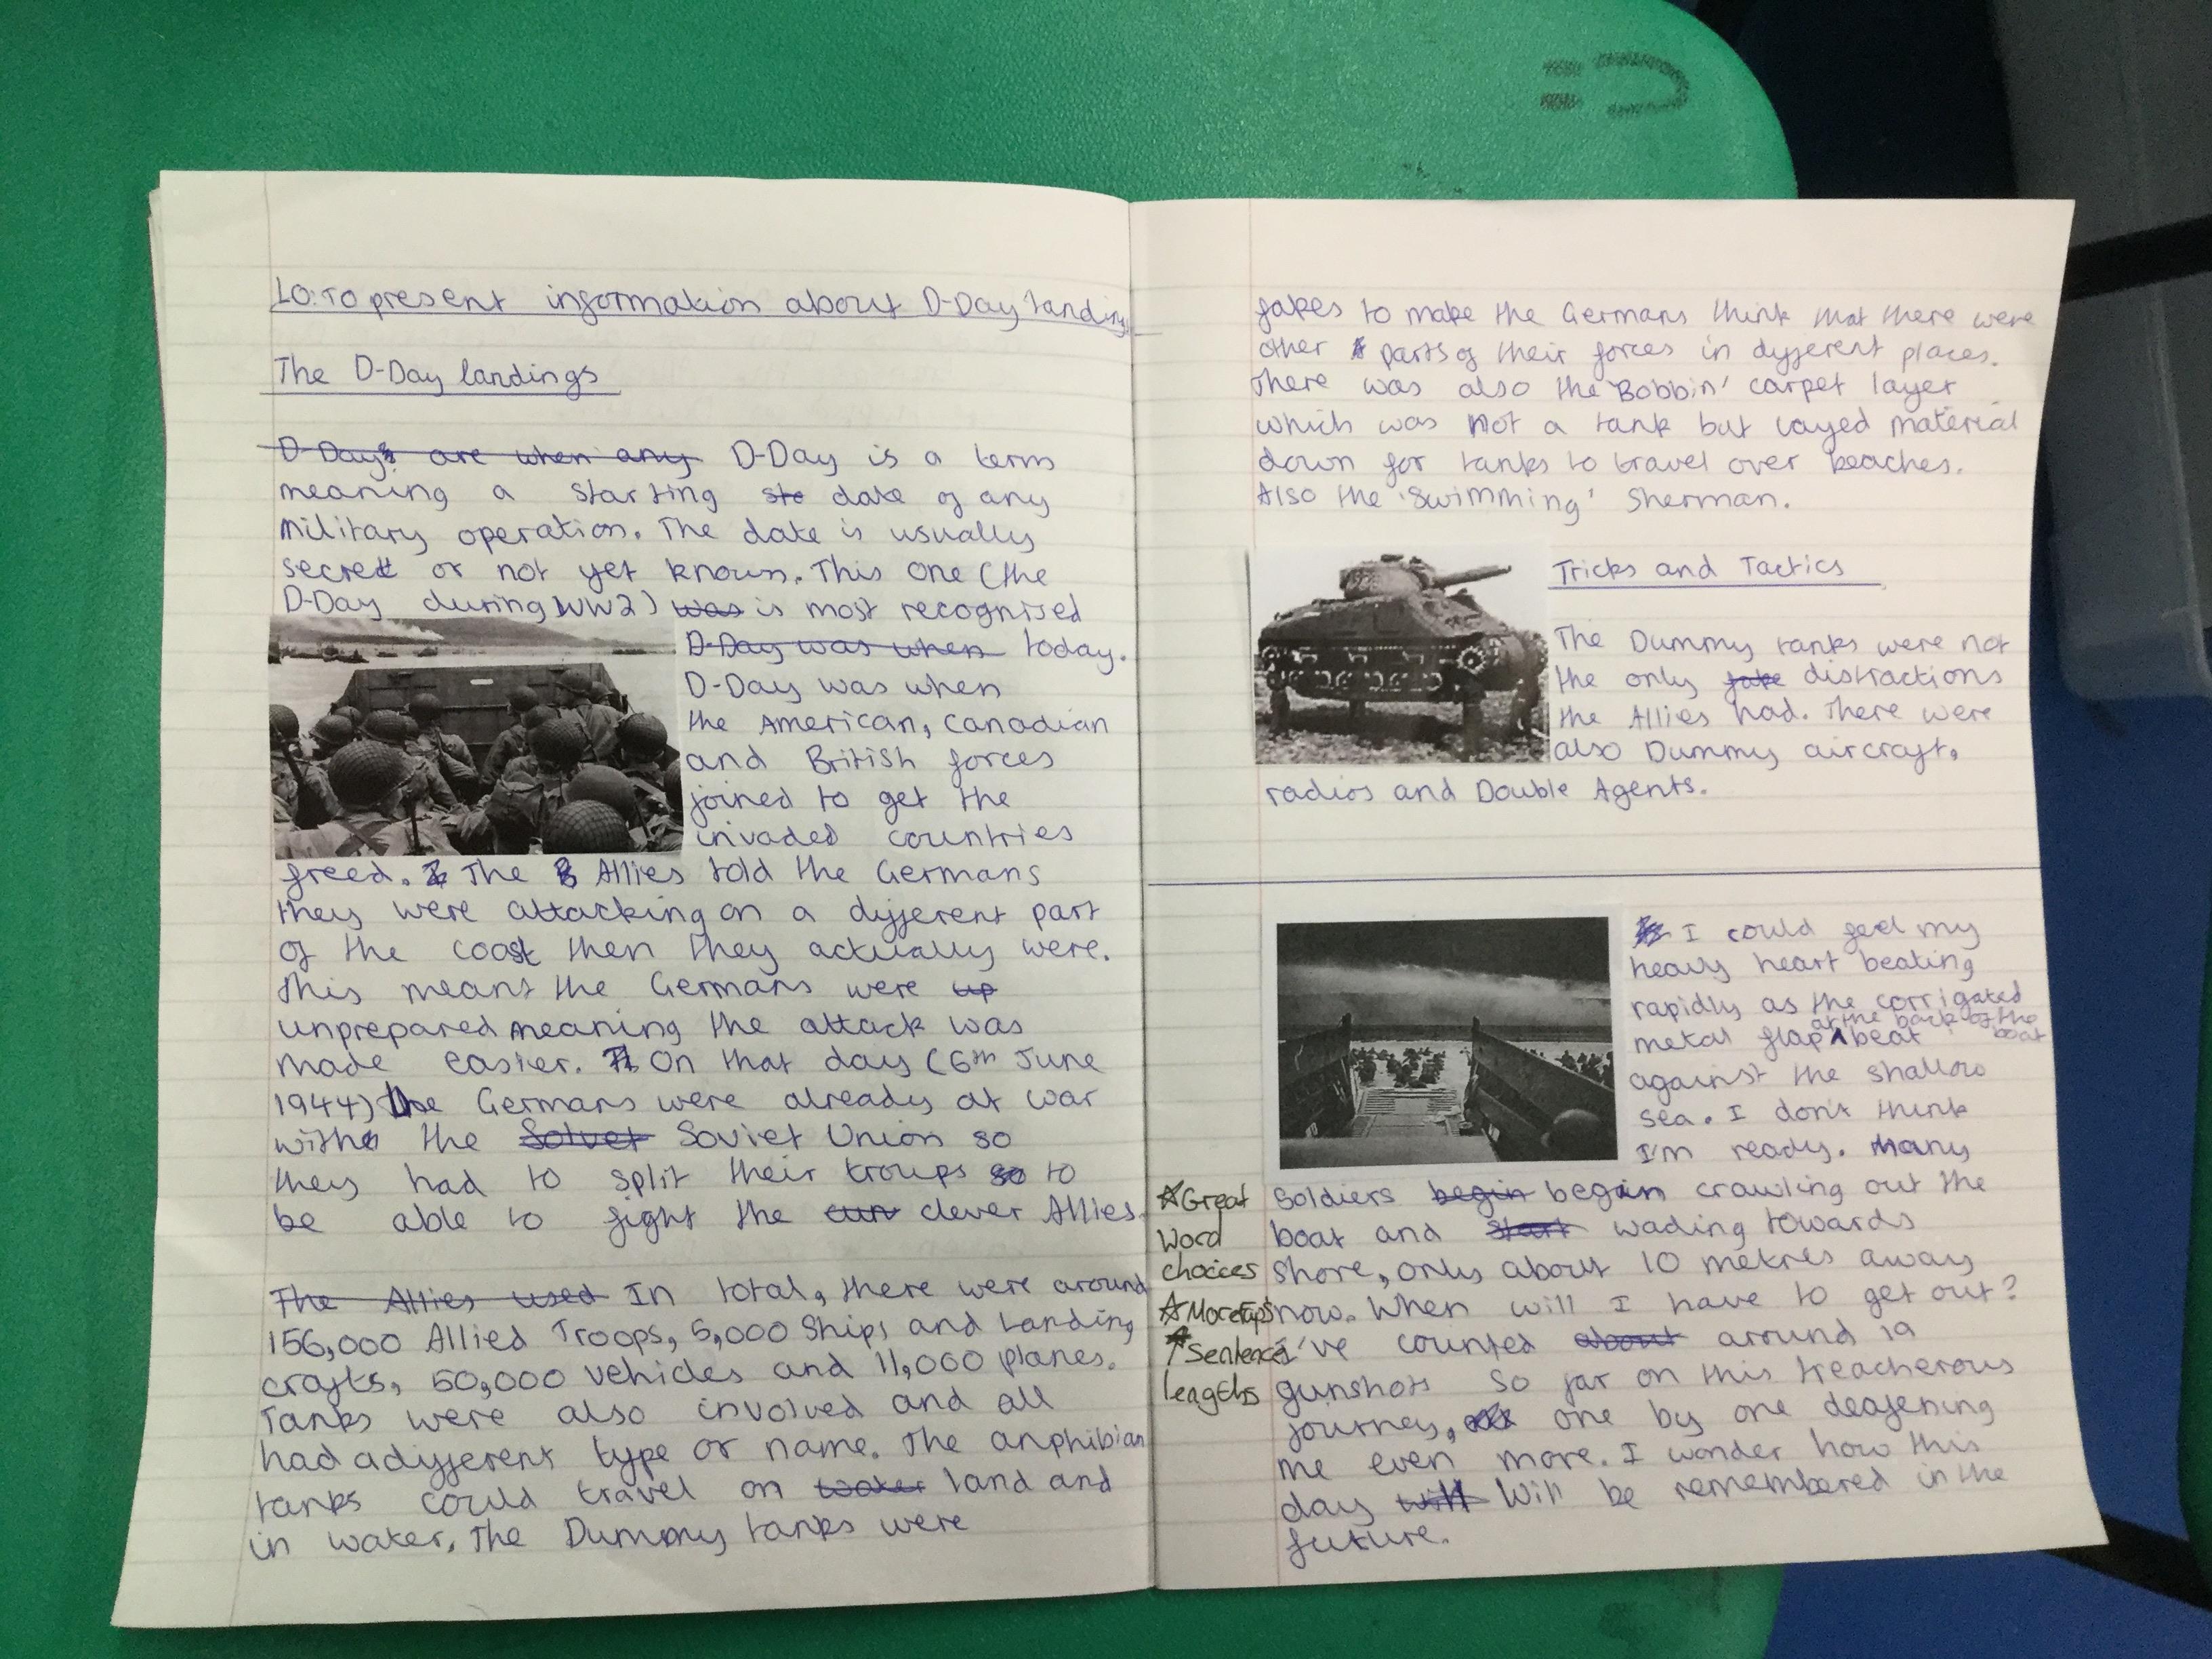 LO: To present information about D-Day landings
The D-Day landings
D-Day's are when any D-Day is a term
meaning a starting ste date of any
military operation. The date is usually
secret or not yet known. This one (the
D-Day during WW2) was is most recognised
D-Day was when today.
D-Day was when
the American, Canadian
and British forces
joined to get the
invaded countries
freed. The Allies told the Germans
they were attacking on a different part
of the coast then they actually were.
This means the Germans were up
unprepared meaning the attack was
made easier. On that day (6th June
1944) the Germans were already at war
with the Solvet Soviet Union so
they had to split their troups so to
be able to fight the cun clever Allies.
The Allies used In total, there were around
156,000 Allied Troops, 5,000 Ships and Landing
crafts, 50,000 vehicles and 11,000 planes.
Tanks were also involved and all
had a different type or name. The anphibian
tanks could travel on water land and
in water, The Dummy tanks were
fakes to make the Germans think that there were
other parts of their forces in different places.
There was also the 'Bobbin' carpet layer
which was not a tank but layed material
down for tanks to travel over beaches.
Also the 'Swimming' Sherman.
Tricks and Tactics
The Dummy tanks were not
the only fake distractions
the Allies had. There were
also Dummy aircraft,
radios and Double Agents.
I could feel my
heavy heart beating
rapidly as the corrigated
at the back of the boat
metal flap ʌ beat
against the shallow
sea. I don't think
I'm ready. Many
soldiers begin began crawling out the
boat and start wading towards
shore, only about 10 metres away
now. When will I have to get out?
I've counted about around 19
gunshots so far on this treacherous
journey, one by one deafening
me even more. I wonder how this
day will will be remembered in the
future.
☆Great
word
choices
☆More
☆Sentence
lengths